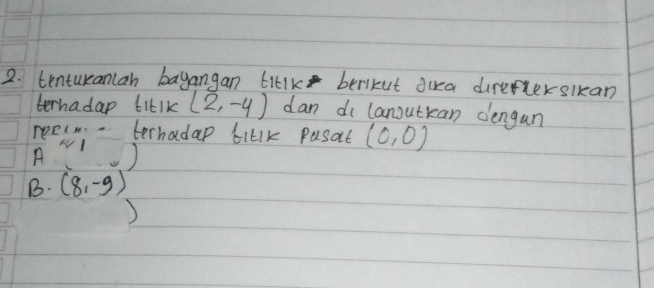 2. tentukanlah bayangan titik berikut jika direfleksikan
terhadap titik (2,-4) dan di lanjutkan dengan
terhadap titik Pusat (0,0)
A )
B. (8,-9)
)